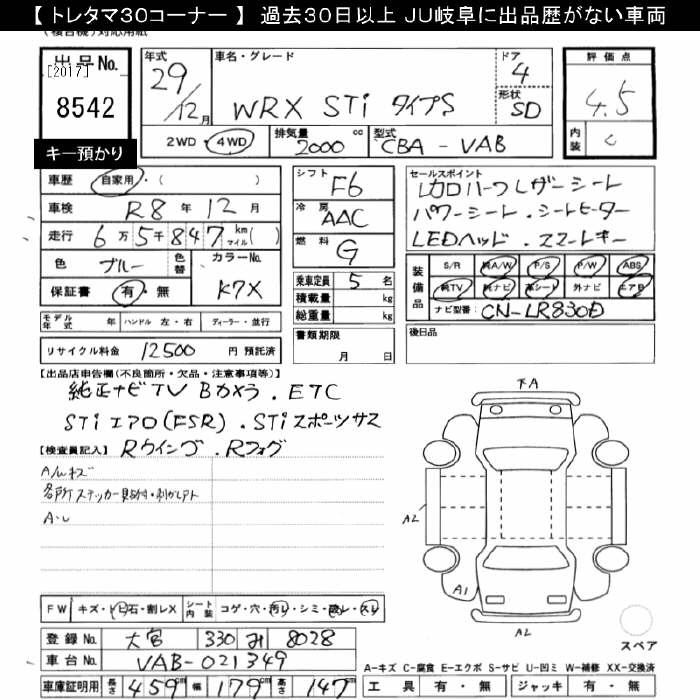 【 トレタマ30コーナー 】 過去30日以上 JU岐阜に出品歴がない車両
出品No.
[2017]
8542
キー預かり
年式 29 / 12月
車名・グレード
WRX STi タイプS
ドア 4
形状 SD
2WD・4WD
排気量 2000 cc
型式 CBA - VAB
評価点
4.5
内装 C
車歴 自家用・( )
車検 R8年 12月
走行 6万5千847 km マイル( )
色 ブルー 色替
カラーNo. K7X
保証書 有・無
モデル年式 年 ハンドル 左・右 ディーラー・並行
リサイクル料金 12500 円 預託済
シフト F6
冷房 AAC
燃料 G
乗車定員 5 名
積載量 kg
総重量 kg
書類期限
月 日
セールスポイント
レカロハーフレザーシート
パワーシート.シートヒーター
LEDヘッド.スマートキー
装備品
S/R 純A/W P/S P/W ABS
純TV 純ナビ 革シート 外ナビ エアB
ナビ型番: CN-LR830D
後日品
【出品店申告欄(不良箇所・欠品・注意事項等)】
純正ナビTV Bカメラ.ETC
STiエアロ(FSR).STiスポーツサス
Rウイング.Rフォグ
【検査員記入】
A/Wキズ
各所ステッカー貼付・剥がしアト
A・レ
FW キズ・トビ石・割レX
シート内装 コゲ・穴・汚レ・シミ・破レ・スレ
登録No. 大宮 330 み 8028
車台No. VAB-021349
車庫証明用 長さ 459cm 幅 179cm 高さ 147cm
下A
A2
A1
A2
スペア
A-キズ C-腐食 E-エクボ S-サビ U-凹ミ W-補修 XX-交換済
工具 有・無 ジャッキ 有・無